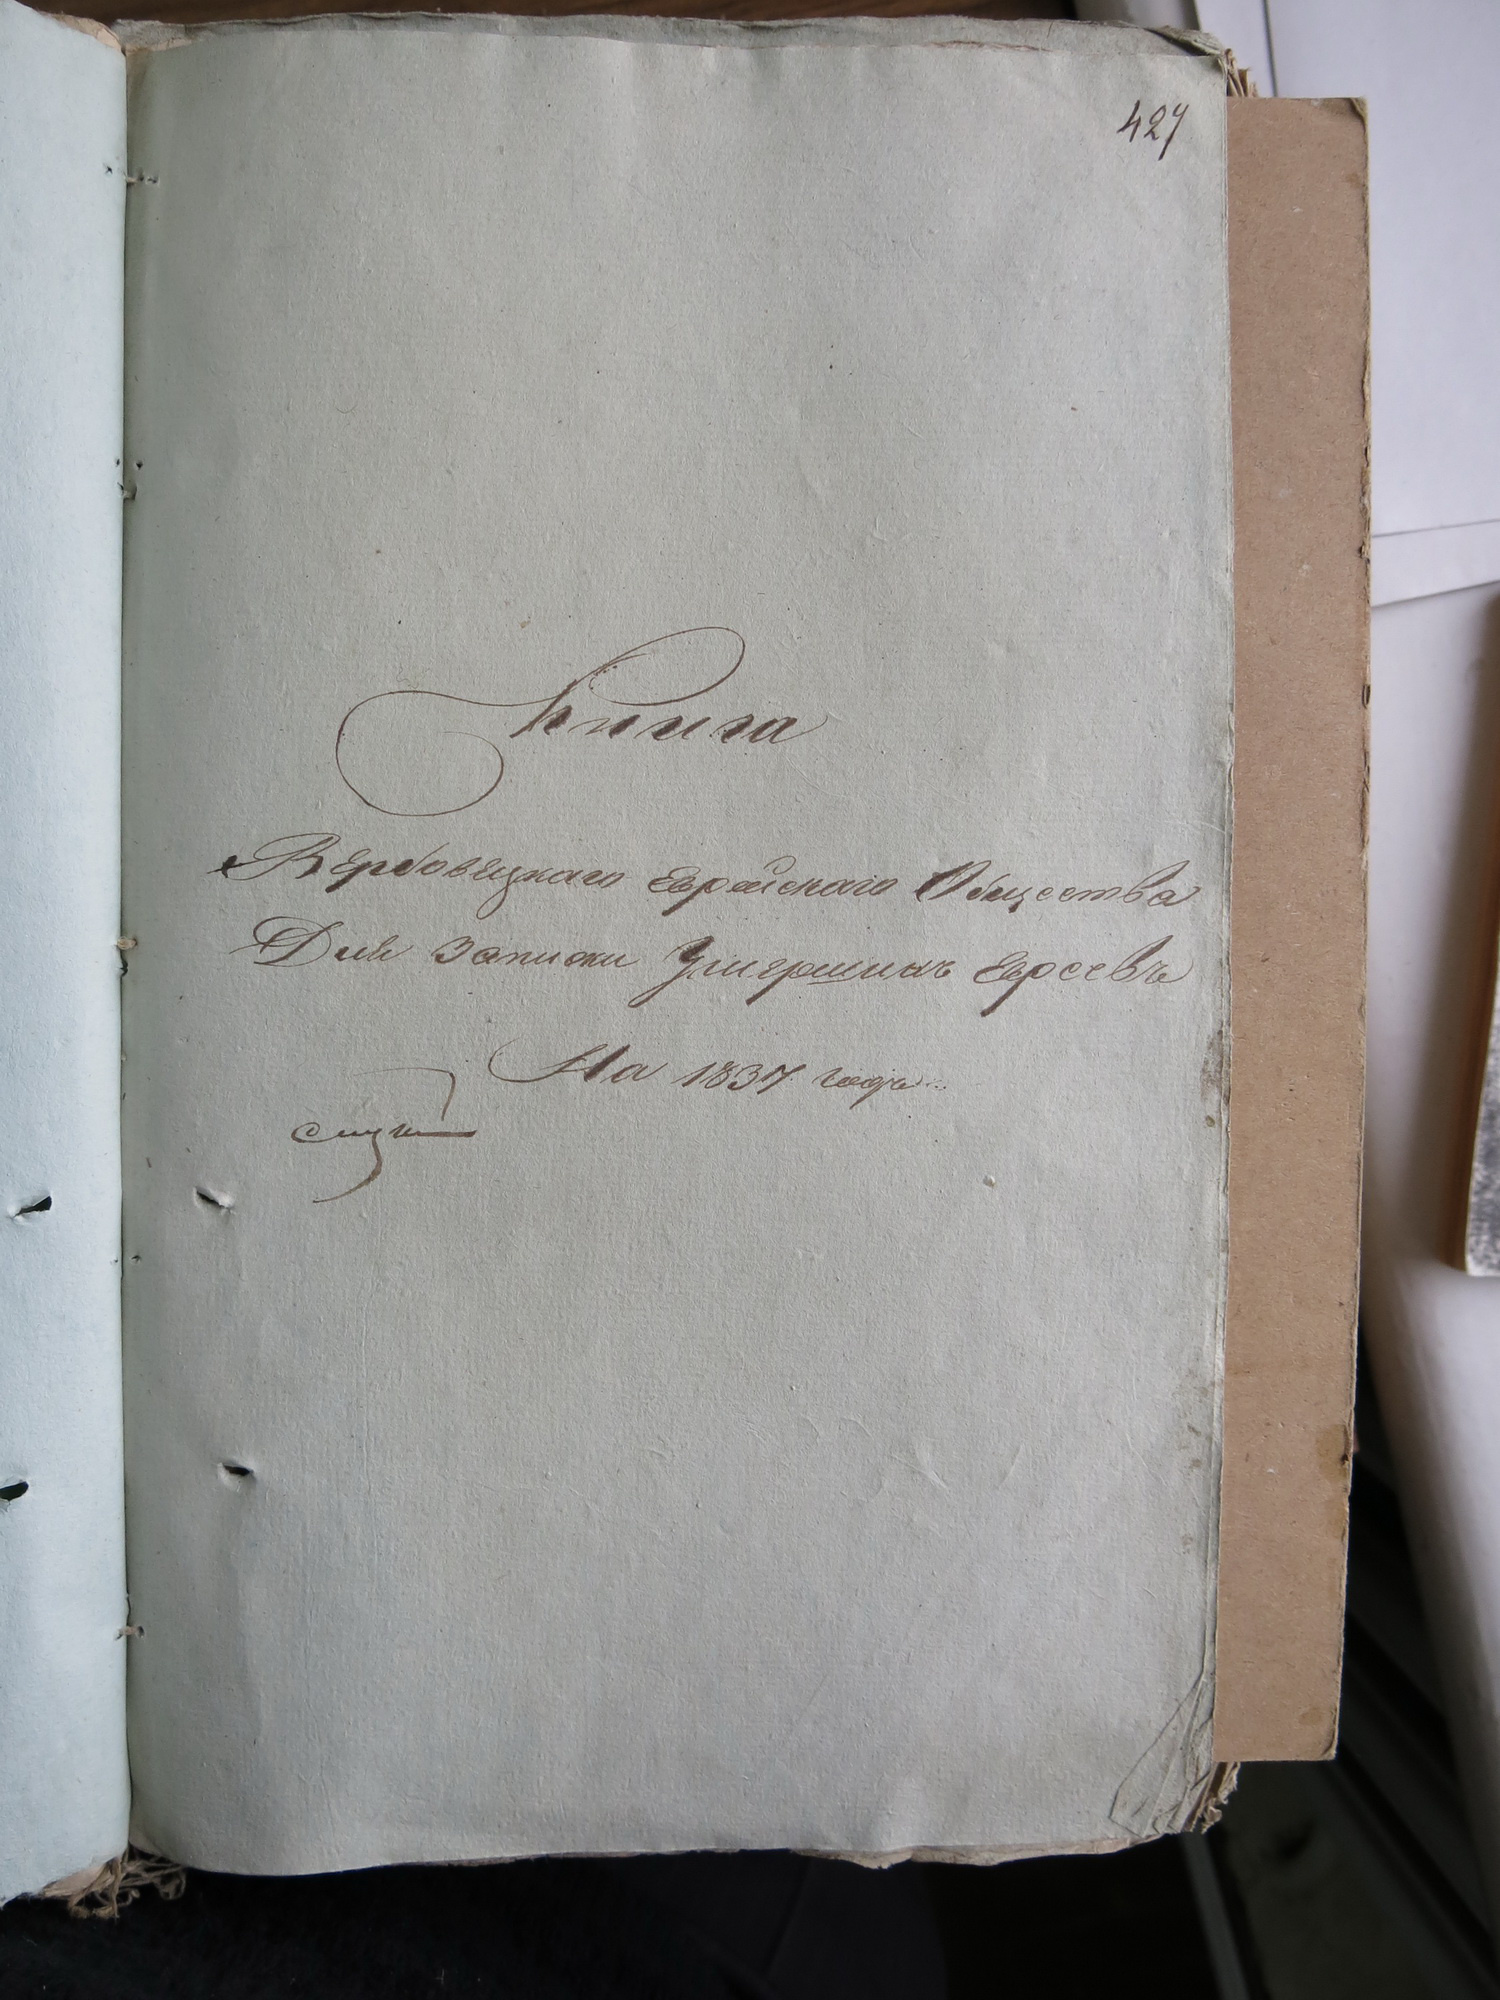 427
Книга
Вербовецкаго Еврейскаго Общества
Для Записки Умершихъ Евреевъ
На 1837 годъ